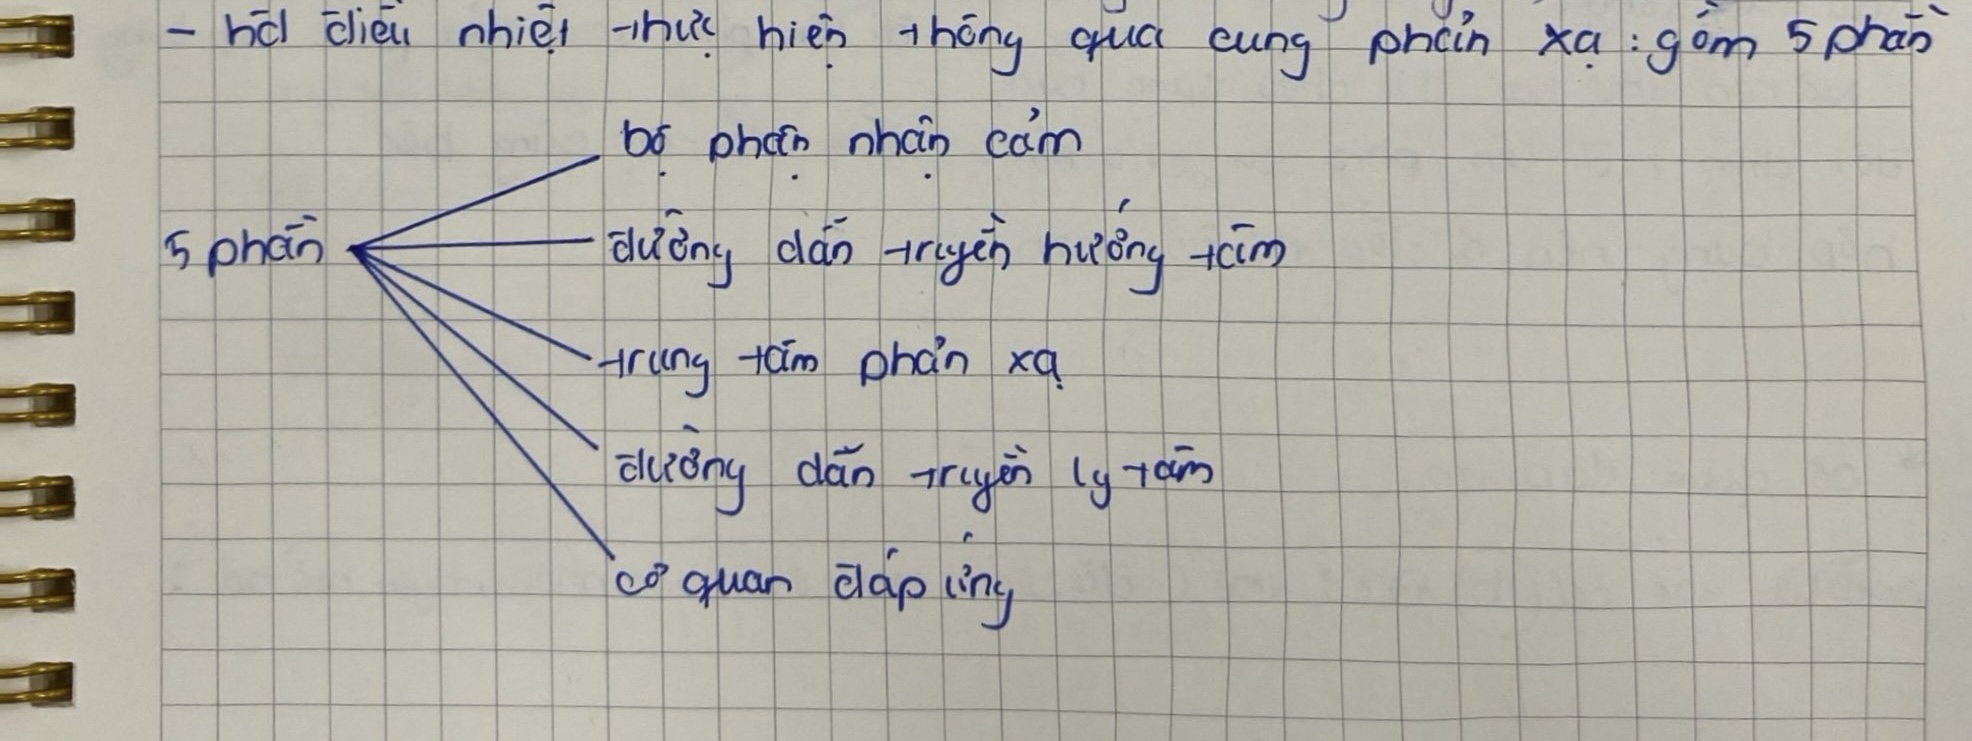 - hđ điều nhiệt thực hiện thông qua cung phản xạ : gồm 5 phần
bộ phận nhận cảm
5 phần
đường dẫn truyền hướng tâm
trung tâm phản xạ
đường dẫn truyền ly tâm
cơ quan đáp ứng